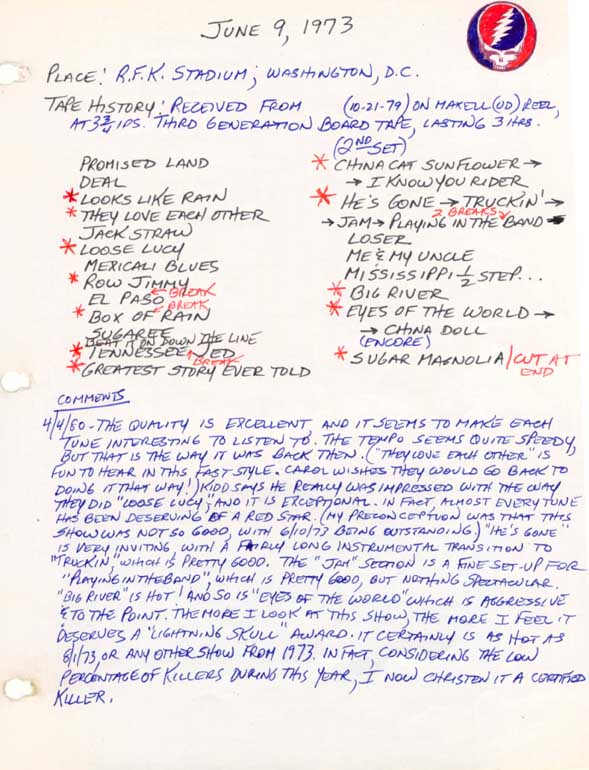 JUNE 9, 1973
PLACE: R.F.K. STADIUM; WASHINGTON, D.C.
TAPE HISTORY: RECEIVED FROM (10-21-79) ON MAXELL (UD) REEL,
AT 3 3/4 IPS. THIRD GENERATION BOARD TAPE, LASTING 3 HRS.
PROMISED LAND
DEAL
* LOOKS LIKE RAIN
* THEY LOVE EACH OTHER
JACK STRAW
* LOOSE LUCY
MEXICALI BLUES
* ROW JIMMY
← BREAK
EL PASO
← BREAK
* BOX OF RAIN
SUGAREE
BEAT IT ON DOWN THE LINE
* TENNESSEE JED
BREAK
* GREATEST STORY EVER TOLD
(2ND SET)
* CHINA CAT SUNFLOWER →
→ I KNOW YOU RIDER
* HE'S GONE → TRUCKIN' →
2 BREAKS
→ JAM → PLAYING IN THE BAND
LOSER
ME & MY UNCLE
MISSISSIPPI 1/2 STEP...
* BIG RIVER
* EYES OF THE WORLD →
→ CHINA DOLL
(ENCORE)
* SUGAR MAGNOLIA / CUT AT
END
COMMENTS
4/4/80 - THE QUALITY IS EXCELLENT AND IT SEEMS TO MAKE EACH
TUNE INTERESTING TO LISTEN TO. THE TEMPO SEEMS QUITE SPEEDY,
BUT THAT IS THE WAY IT WAS BACK THEN. ("THEY LOVE EACH OTHER" IS
FUN TO HEAR IN THIS FAST STYLE. CAROL WISHES THEY WOULD GO BACK TO
DOING IT THAT WAY!) KIDD SAYS HE REALLY WAS IMPRESSED WITH THE WAY
THEY DID "LOOSE LUCY," AND IT IS EXCEPTIONAL. IN FACT, ALMOST EVERY TUNE
HAS BEEN DESERVING OF A RED STAR. (MY PRECONCEPTION WAS THAT THIS
SHOW WAS NOT SO GOOD, WITH 6/10/73 BEING OUTSTANDING.) "HE'S GONE"
IS VERY INVITING, WITH A FAIRLY LONG INSTRUMENTAL TRANSITION TO
"TRUCKIN'," WHICH IS PRETTY GOOD. THE "JAM" SECTION IS A FINE SET-UP FOR
"PLAYING IN THE BAND", WHICH IS PRETTY GOOD, BUT NOTHING SPECTACULAR.
"BIG RIVER" IS HOT! AND SO IS "EYES OF THE WORLD" WHICH IS AGGRESSIVE
& TO THE POINT. THE MORE I LOOK AT THIS SHOW, THE MORE I FEEL IT
DESERVES A "LIGHTNING SKULL" AWARD. IT CERTAINLY IS AS HOT AS
OR ANY OTHER SHOW FROM 1973. IN FACT, CONSIDERING THE LOW
PERCENTAGE OF KILLERS DURING THIS YEAR, I NOW CHRISTEN IT A CERTIFIED
KILLER.